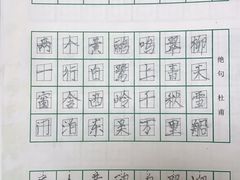 两个黄鹂鸣翠柳
一行白鹭上青天
窗含西岭千秋雪
门泊东吴万里船
绝句 杜甫